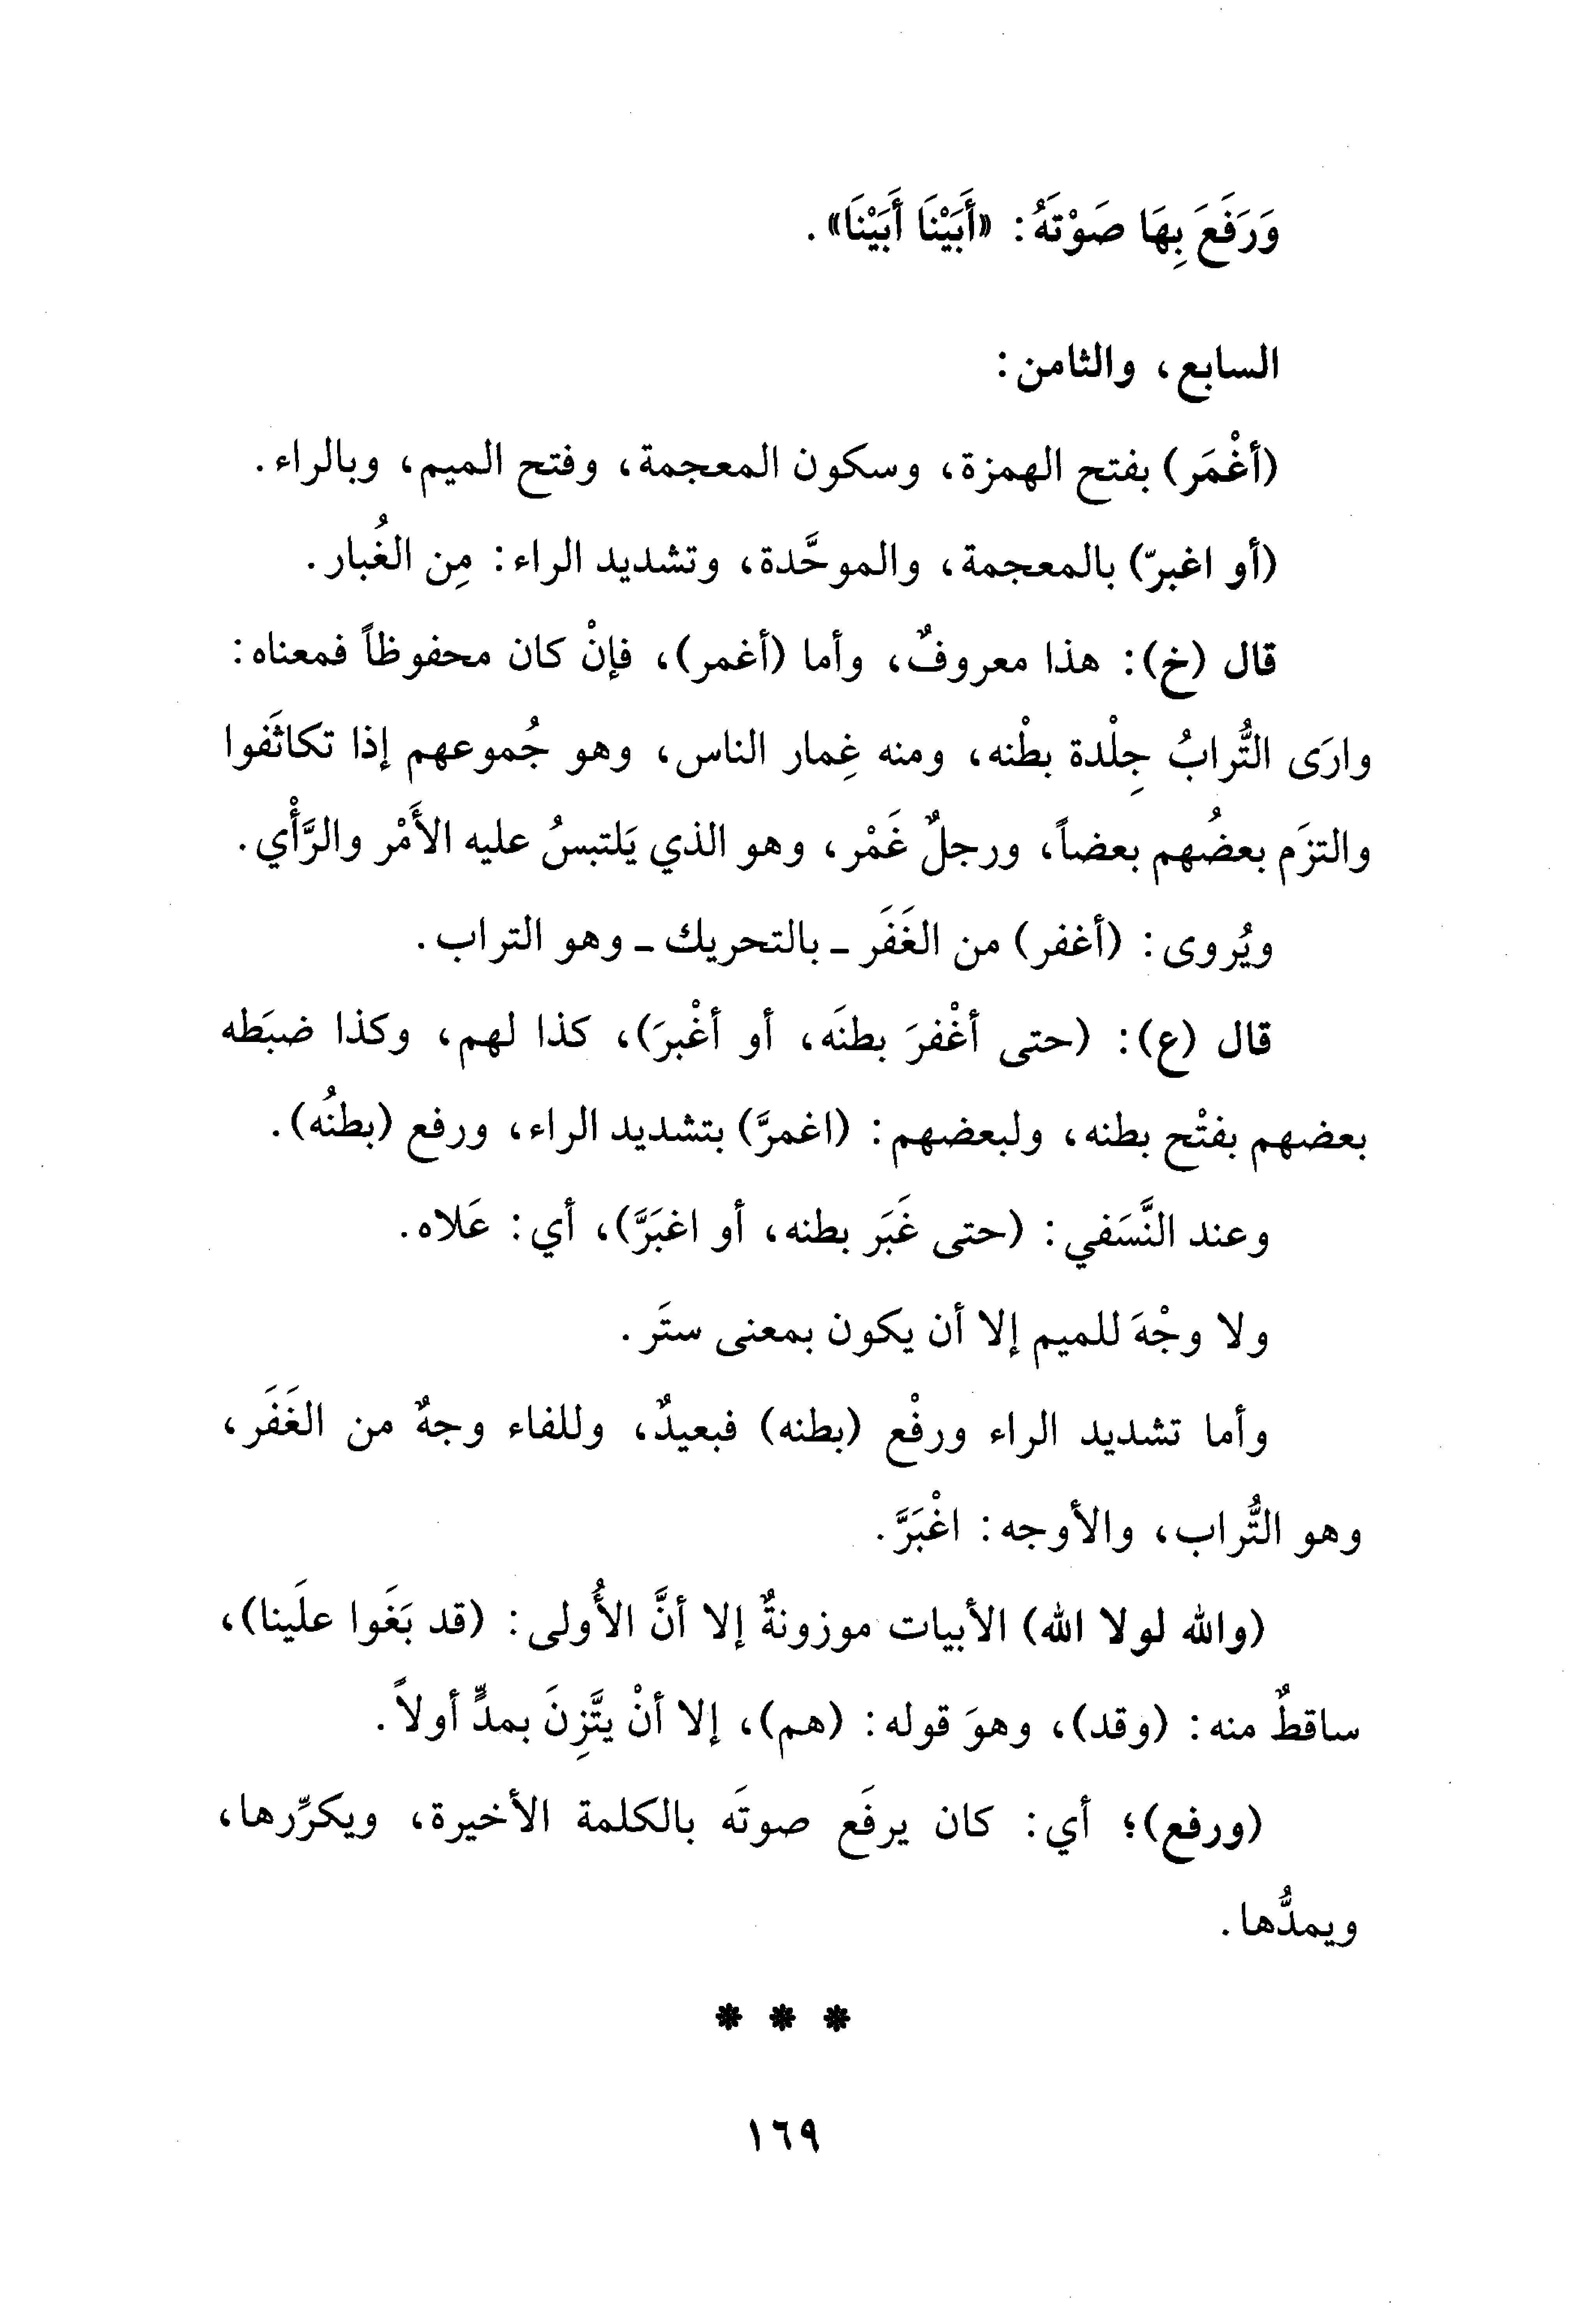 وَرَفَعَ بِهَا صَوْتَهُ: «أَبَيْنَا أَبَيْنَا».
السابع، والثامن:
(أغْمَر) بفتح الهمزة، وسكون المعجمة، وفتح الميم، وبالراء.
(أو اغبرّ) بالمعجمة، والموحَّدة، وتشديد الراء: مِن الغُبار.
قال (خ): هذا معروفٌ، وأما (أغمر)، فإنْ كان محفوظاً فمعناه:
وارَى التُّرابُ جِلْدة بطْنه، ومنه غِمار الناس، وهو جُموعهم إذا تكاثَفوا
والتزَم بعضُهم بعضاً، ورجلٌ غَمْر، وهو الذي يَلتبسُ عليه الأَمْر والرَّأْي.
ويُروى: (أغفر) من الغَفَر ـ بالتحريك ـ وهو التراب.
قال (ع): (حتى أغْفرَ بطنَه، أو أغْبرَ)، كذا لهم، وكذا ضبَطه
بعضهم بفتْح بطنه، ولبعضهم: (اغمرَّ) بتشديد الراء، ورفع (بطنُه).
وعند النَّسَفي: (حتى غَبَر بطنه، أو اغبَرَّ)، أي: عَلاه.
ولا وجْهَ للميم إلا أن يكون بمعنى ستَر.
وأما تشديد الراء ورفْع (بطنه) فبعيدٌ، وللفاء وجهٌ من الغَفَر،
وهو التُّراب، والأوجه: اغْبَرَّ.
(والله لولا الله) الأبيات موزونةٌ إلا أنَّ الأُولى: (قد بَغَوا علَينا)،
ساقطٌ منه: (وقد)، وهوَ قوله: (هم)، إلا أنْ يتَّزِنَ بمدٍّ أولاً.
(ورفع)؛ أي: كان يرفَع صوتَه بالكلمة الأخيرة، ويكرِّرها،
ويمدُّها.
* * *
١٦٩